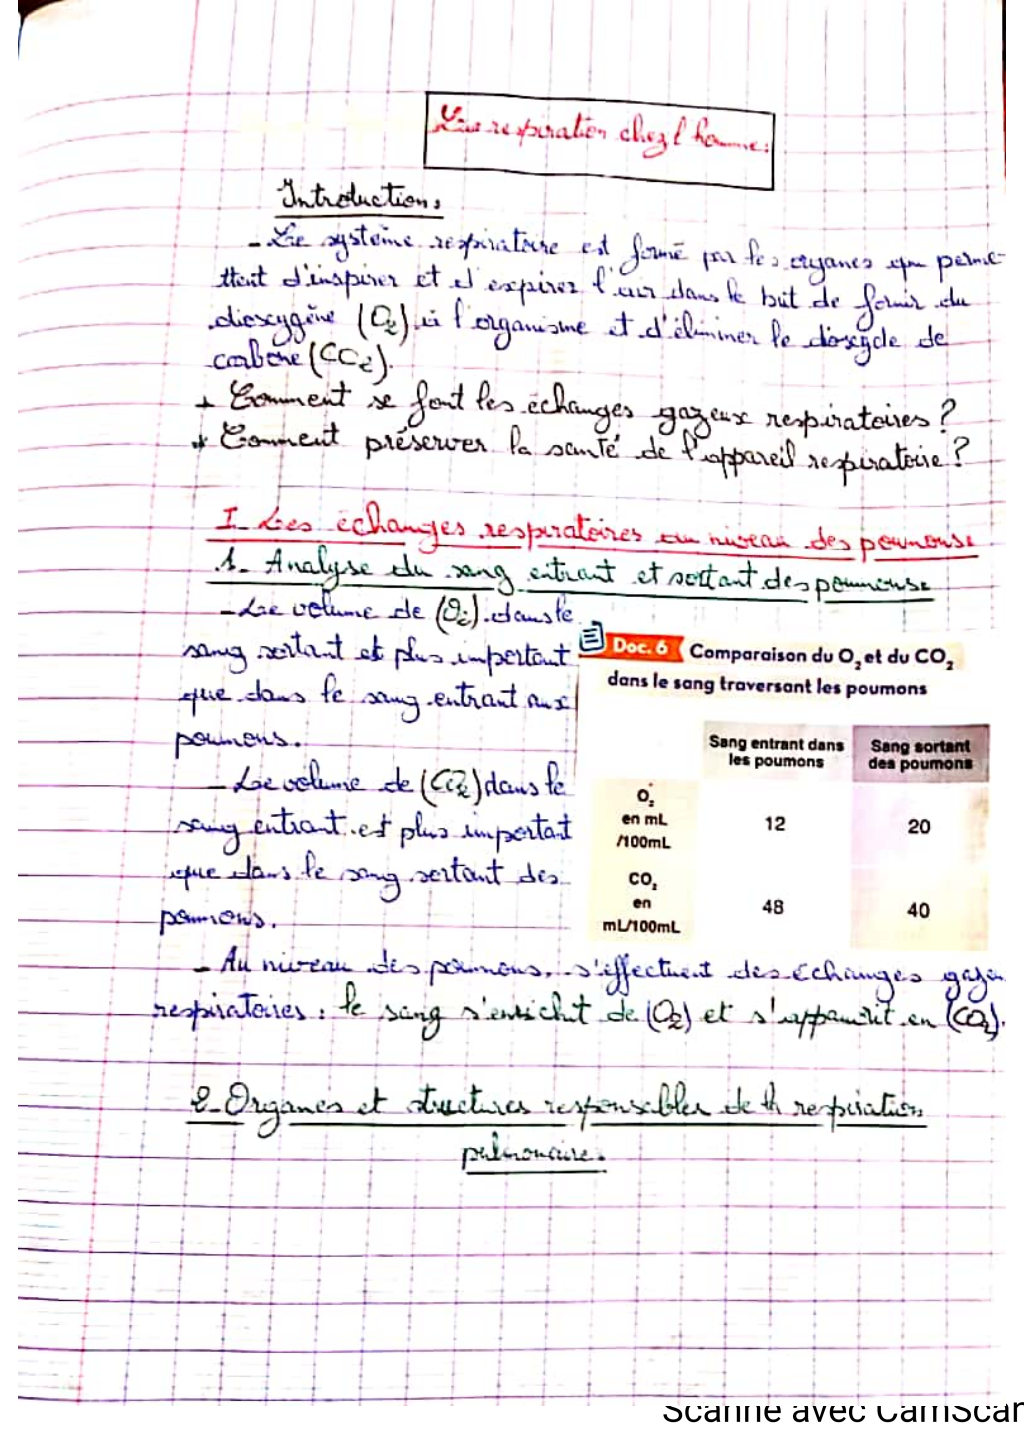 La respiration chez l'homme:
Introduction:
- Le système respiratoire est formé par les organes qui perme-
ttent d'inspirer et d'expirer l'air dans le but de fornir du
dioxygène (O₂) à l'organisme et d'éliminer le dioxyde de
carbone (CO₂).
+ Comment se font les échanges gazeux respiratoires ?
+ Comment préserver la santé de l'appareil respiratoire ?
I- Les échanges respiratoires au niveau des poumons
1- Analyse du sang entrant et sortant des poumons
- Le volume de (O₂) dans le
sang sortant est plus important
que dans le sang entrant aux
poumons.
- Le volume de (CO₂) dans le
sang entrant est plus important
que dans le sang sortant des
poumons.
Doc. 6 Comparaison du O₂ et du CO₂
dans le sang traversant les poumons
Sang entrant dans
les poumons
Sang sortant
des poumons
O₂
en mL
/100mL
12
20
CO₂
en
mL/100mL
48
40
- Au niveau des poumons, s'effectuent des échanges
respiratoires : le sang s'enrichit de (O₂) et s'appauvrit en (CO₂).
2- Organes et structures responsables de la respiration
pulmonaire.
Scanné avec CamScan